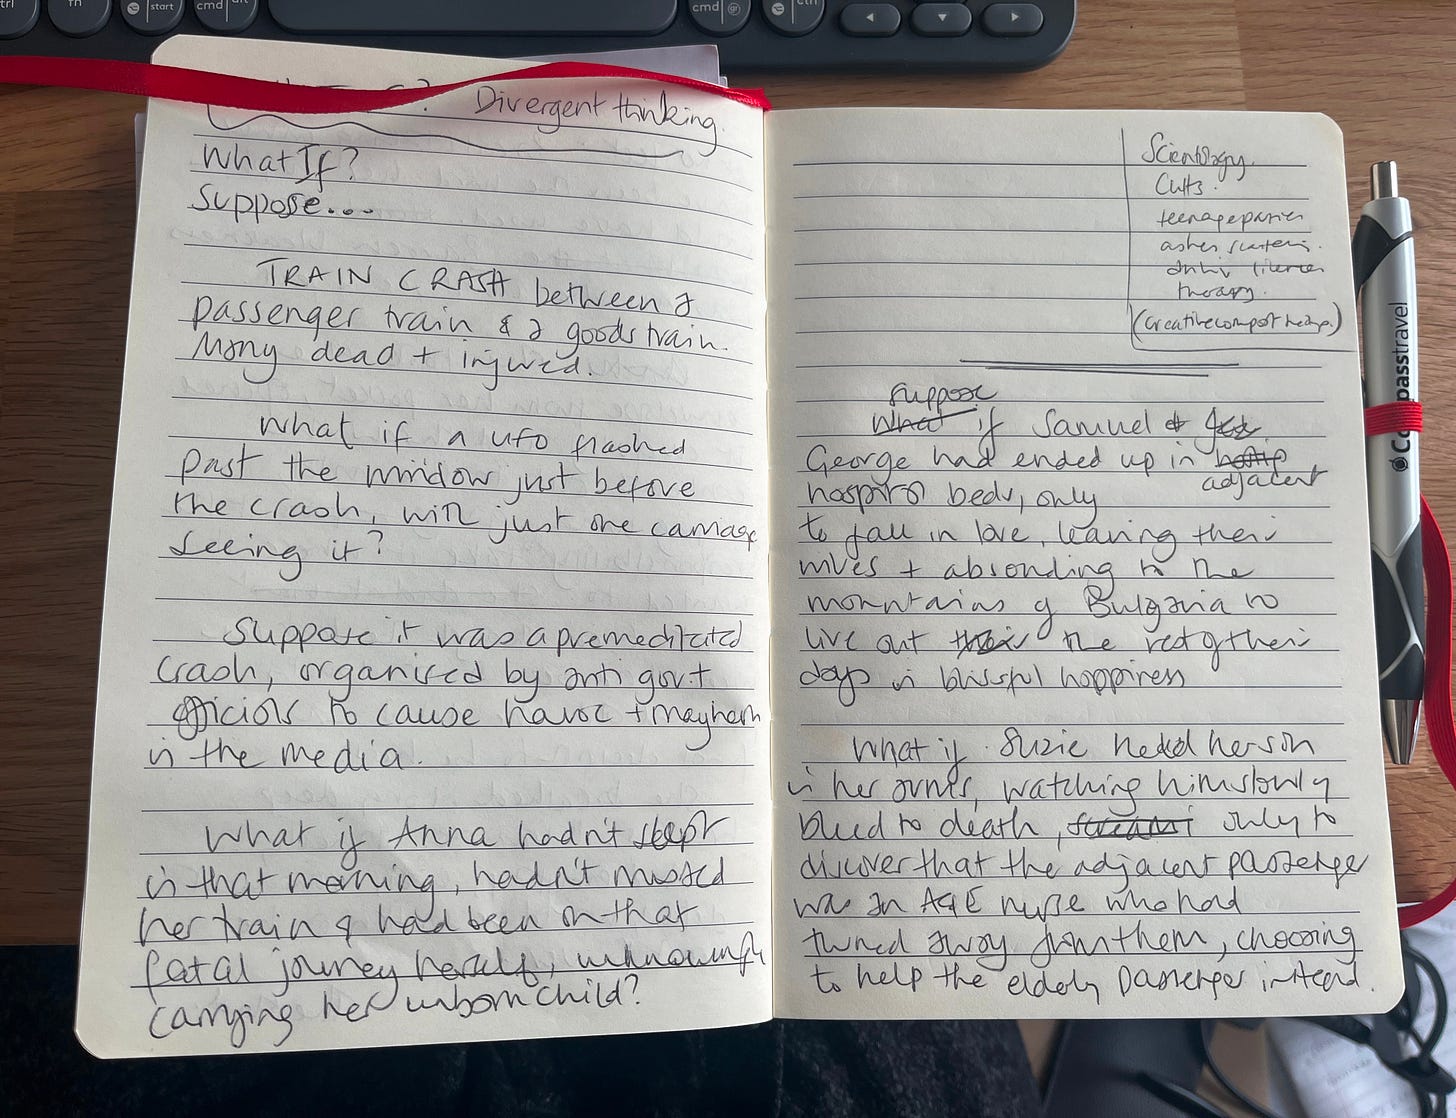 Divergent thinking.
What If?
Suppose...
TRAIN CRASH between a
passenger train & a goods train.
Many dead + injured.
What if a UFO flashed
past the window just before
the crash, with just one carriage
seeing it?
Suppose it was a premeditated
crash, organised by anti govt
officials to cause havoc + mayhem
in the media.
What if Anna hadn't slept
in that morning, hadn't missed
her train & had been on that
fatal journey herself, unknowingly
carrying her unborn child?
Scientology.
Cults.
teenage parties
ashes scattering.
therapy.
(creative compost heap.)
suppose
What if Samuel &
George had ended up in
adjacent
hospital beds, only
to fall in love, leaving their
wives + absonding to the
mountains of Bulgaria to
live out their the rest of their
days in blissful happiness
What if Suzie held her son
in her arms, watching him slowly
bleed to death, only to
discover that the adjacent passenger
was an A&E nurse who had
turned away from them, choosing
to help the elderly passenger instead.
Compasstravel
ctrl
fn
start
cmd
alt
cmd
ctrl